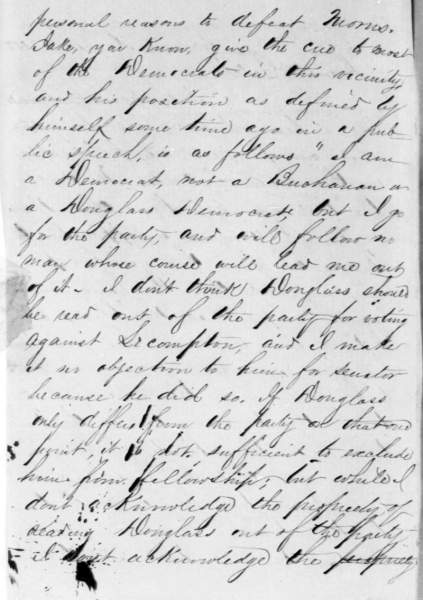 personal reasons to defeat Morris.
Jake, you know, give the cue to most
of the Democrats in this vicinity,
and his position as defined by
himself some time ago in a pub-
lic speech, is as follows "I am
a Democrat, not a Buchanan or
a Douglass Democrat, but I go
for the party, and will follow no
man whose course will lead me out
of it. I don't think Douglass should
be read out of the party for voting
against Lecompton, and I make
it no objection to him for senator
because he did so. If Douglass
only differs from the party on that one
point, it is not sufficient to exclude
him from fellowship, but while I
don't acknowledge the propriety of
reading Douglass out of the party
I don't acknowledge the propriety